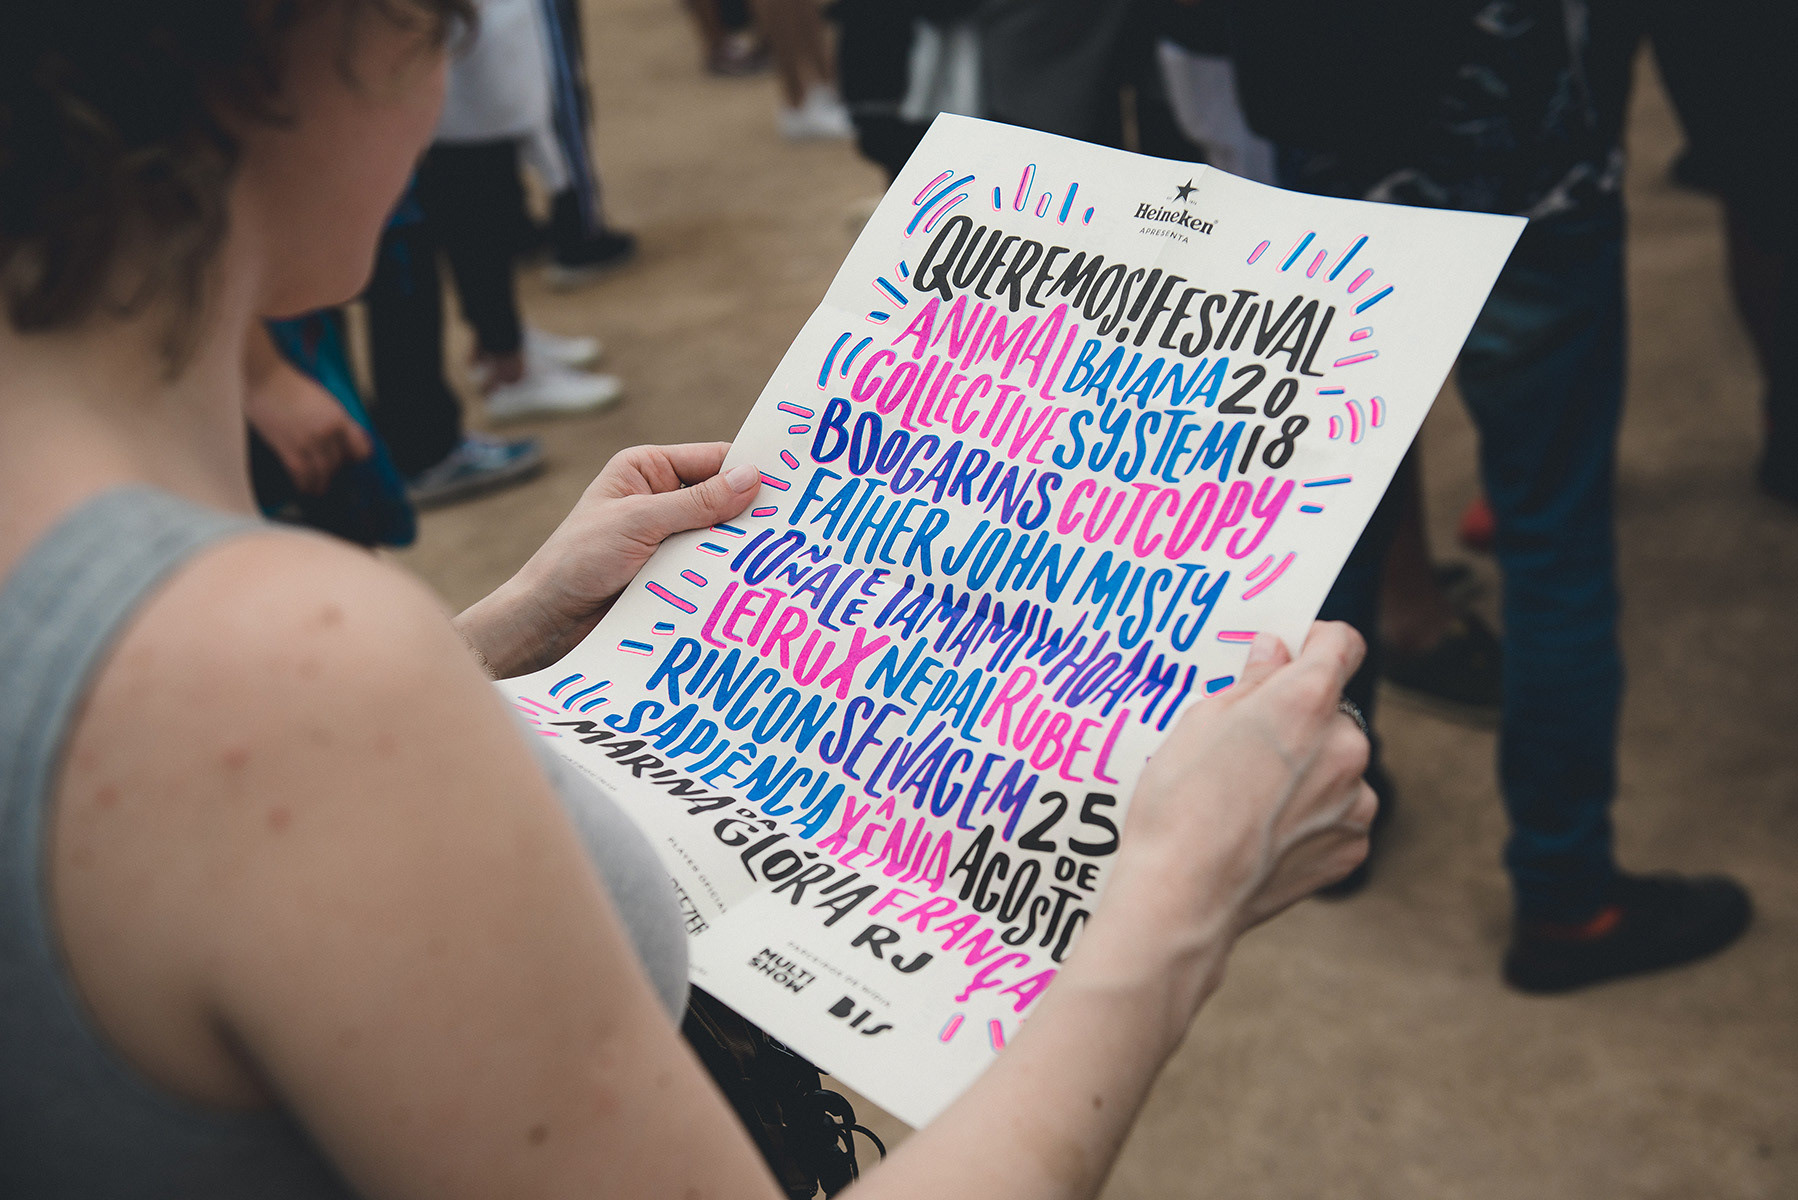 Heineken
APRESENTA
QUEREMOS! FESTIVAL
2018
ANIMAL COLLECTIVE
BAIANA SYSTEM
BOOGARINS
CUTCOPY
FATHER JOHN MISTY
IAMAMIWHOAMI
LETRUX
NEPAL
RUBEL
RINCON SAPIÊNCIA
SELVAGEM
XÊNIA FRANÇA
25 DE AGOSTO
MARINA DA GLÓRIA RJ
PLAYER OFICIAL
DEEZER
PARCEIROS DE MÍDIA
MULTI SHOW
BIS